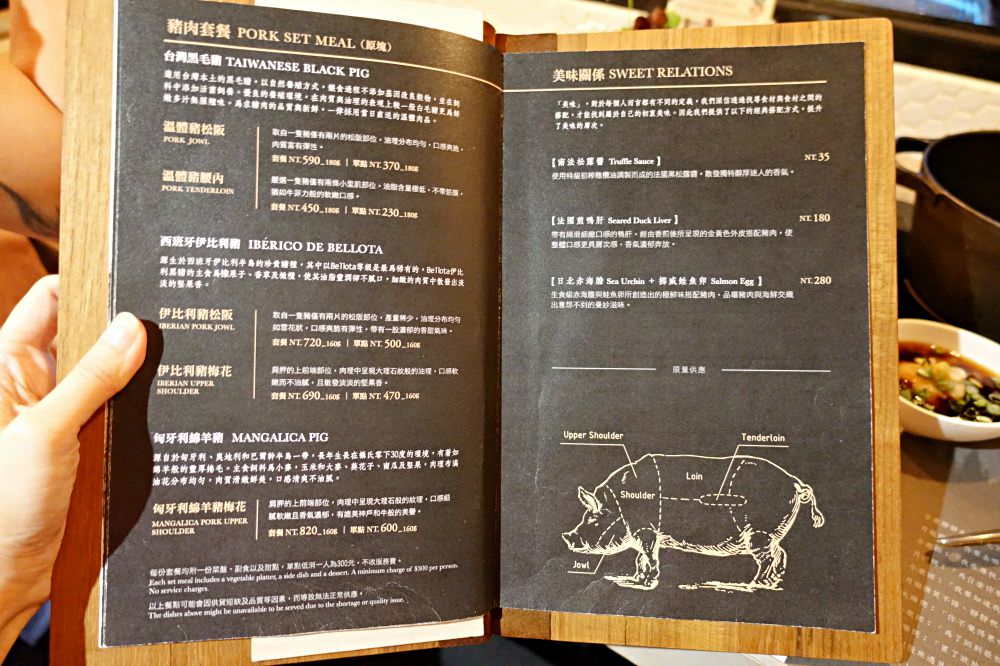 豬肉套餐 PORK SET MEAL（原塊）
台灣黑毛豬 TAIWANESE BLACK PIG
選用台灣本土的黑毛豬，以自然養殖方式，餵食過程不添加基因改良穀物，並在飼
料中添加活菌飼養。
溫體豬松阪
PORK JOWL
取自一隻豬僅有兩片的松阪部位，油理分布均勻，口感爽脆，
肉質富有彈性。
套餐 NT.590_180g ｜ 單點 NT.370_180g
溫體豬腰內
PORK TENDERLOIN
嚴選一隻豬僅有兩條小里肌部位，油脂含量極低，不帶筋膜，
猶如牛菲力般的軟嫩口感。
套餐 NT.450_180g ｜ 單點 NT.230_180g
西班牙伊比利豬 IBÉRICO DE BELLOTA
源生於西班牙伊比利半島的珍貴豬種，其中以Bellota等級是最為稀有的，Bellota伊比
利黑豬的主食為橡果子、香草及橄欖，使其油脂豐潤卻不膩口，細緻的肉質中散發出淡
淡的堅果香。
伊比利豬松阪
IBERIAN PORK JOWL
取自一隻豬僅有兩片的松阪部位，產量稀少，油理分布均勻
如雪花狀，口感爽脆有彈性，帶有一股濃郁的香甜氣味。
套餐 NT.720_160g ｜ 單點 NT.500_160g
伊比利豬梅花
IBERIAN UPPER
SHOULDER
肩胛的上前端部位，肉理中呈現大理石紋般的油理，口感軟
嫩而不油膩，且散發淡淡的堅果香。
套餐 NT.690_160g ｜ 單點 NT.470_160g
匈牙利綿羊豬 MANGALICA PIG
源自於匈牙利、奧地利和巴爾幹半島一帶，長年生長在攝氏零下30度的環境，有著如
綿羊般的豐厚捲毛。主食飼料為小麥、玉米和大麥、葵花子、南瓜及堅果，肉理布滿
油花分布均勻，肉質滑嫩鮮美，口感清爽不油膩。
匈牙利綿羊豬梅花
MANGALICA PORK UPPER
SHOULDER
肩胛的上前端部位，肉理中呈現大理石般的紋理，口感細
膩軟嫩且香氣濃郁，有媲美神戶和牛般的美譽。
套餐 NT.820_160g ｜ 單點 NT.600_160g
每份套餐均附一份菜盤、副食以及甜點，單點低消一人為300元，不收服務費。
Each set meal includes a vegetable platter, a side dish and a dessert. A minimum charge of $300 per person.
No service charges.
以上餐點可能會因供貨短缺及品質等因素，而導致無法正常供應。
The dishes above might be unavailable to be served due to the shortage or quality issue.
美味關係 SWEET RELATIONS
「美味」，對於每個人而言都有不同的定義，我們深信透過找尋食材與食材之間的
搭配，才能找到屬於自己的初衷美味。因此我們提供了以下的經典搭配方式，提升
了美味的層次。
【南法松露醬 Truffle Sauce】
NT.35
使用特級初榨橄欖油調製而成的法國黑松露醬，散發獨特醇厚迷人的香氣。
【法國煎鴨肝 Seared Duck Liver】
NT.180
帶有綿滑細緻口感的鴨肝，經由香煎後所呈現的金黃色外皮搭配豬肉，使
整體口感更具層次感，香氣濃郁奔放。
【日北赤海膽 Sea Urchin + 挪威鮭魚卵 Salmon Egg】
NT.280
生食級赤海膽與鮭魚卵所創造出的極鮮味搭配豬肉，品嚐豬肉與海鮮交織
出意想不到的曼妙滋味。
限量供應
Upper Shoulder
Tenderloin
Loin
Shoulder
Jowl